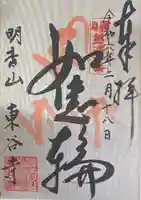 奉拝
令和六年二月十八日
如意輪
明香山
東谷寺